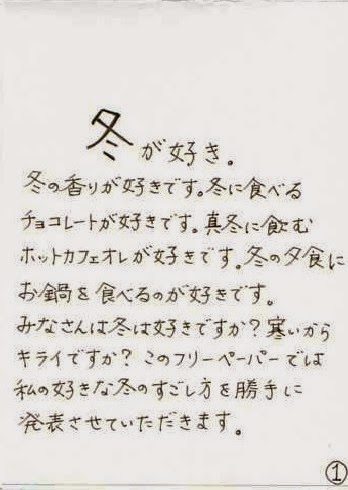 冬が好き。
冬の香りが好きです。冬に食べる
チョコレートが好きです。真冬に飲む
ホットカフェオレが好きです。冬の夕食に
お鍋を食べるのが好きです。
みなさんは冬は好きですか？寒いから
キライですか？このフリーペーパーでは
私の好きな冬のすごし方を勝手に
発表させていただきます。
①